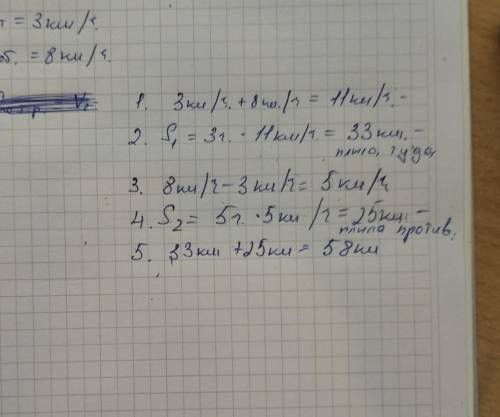 = 3км/г.
= 8км/г.
1. 3км/г. + 8км./г = 11км/г. -
2. S₁ = 3г. · 11км/г. = 33км, -
плыла туда,
3. 8км/г - 3км/г = 5км/г
4. S₂ = 5г. · 5км/г = 25км, -
плыла против.
5. 33км + 25км = 58км